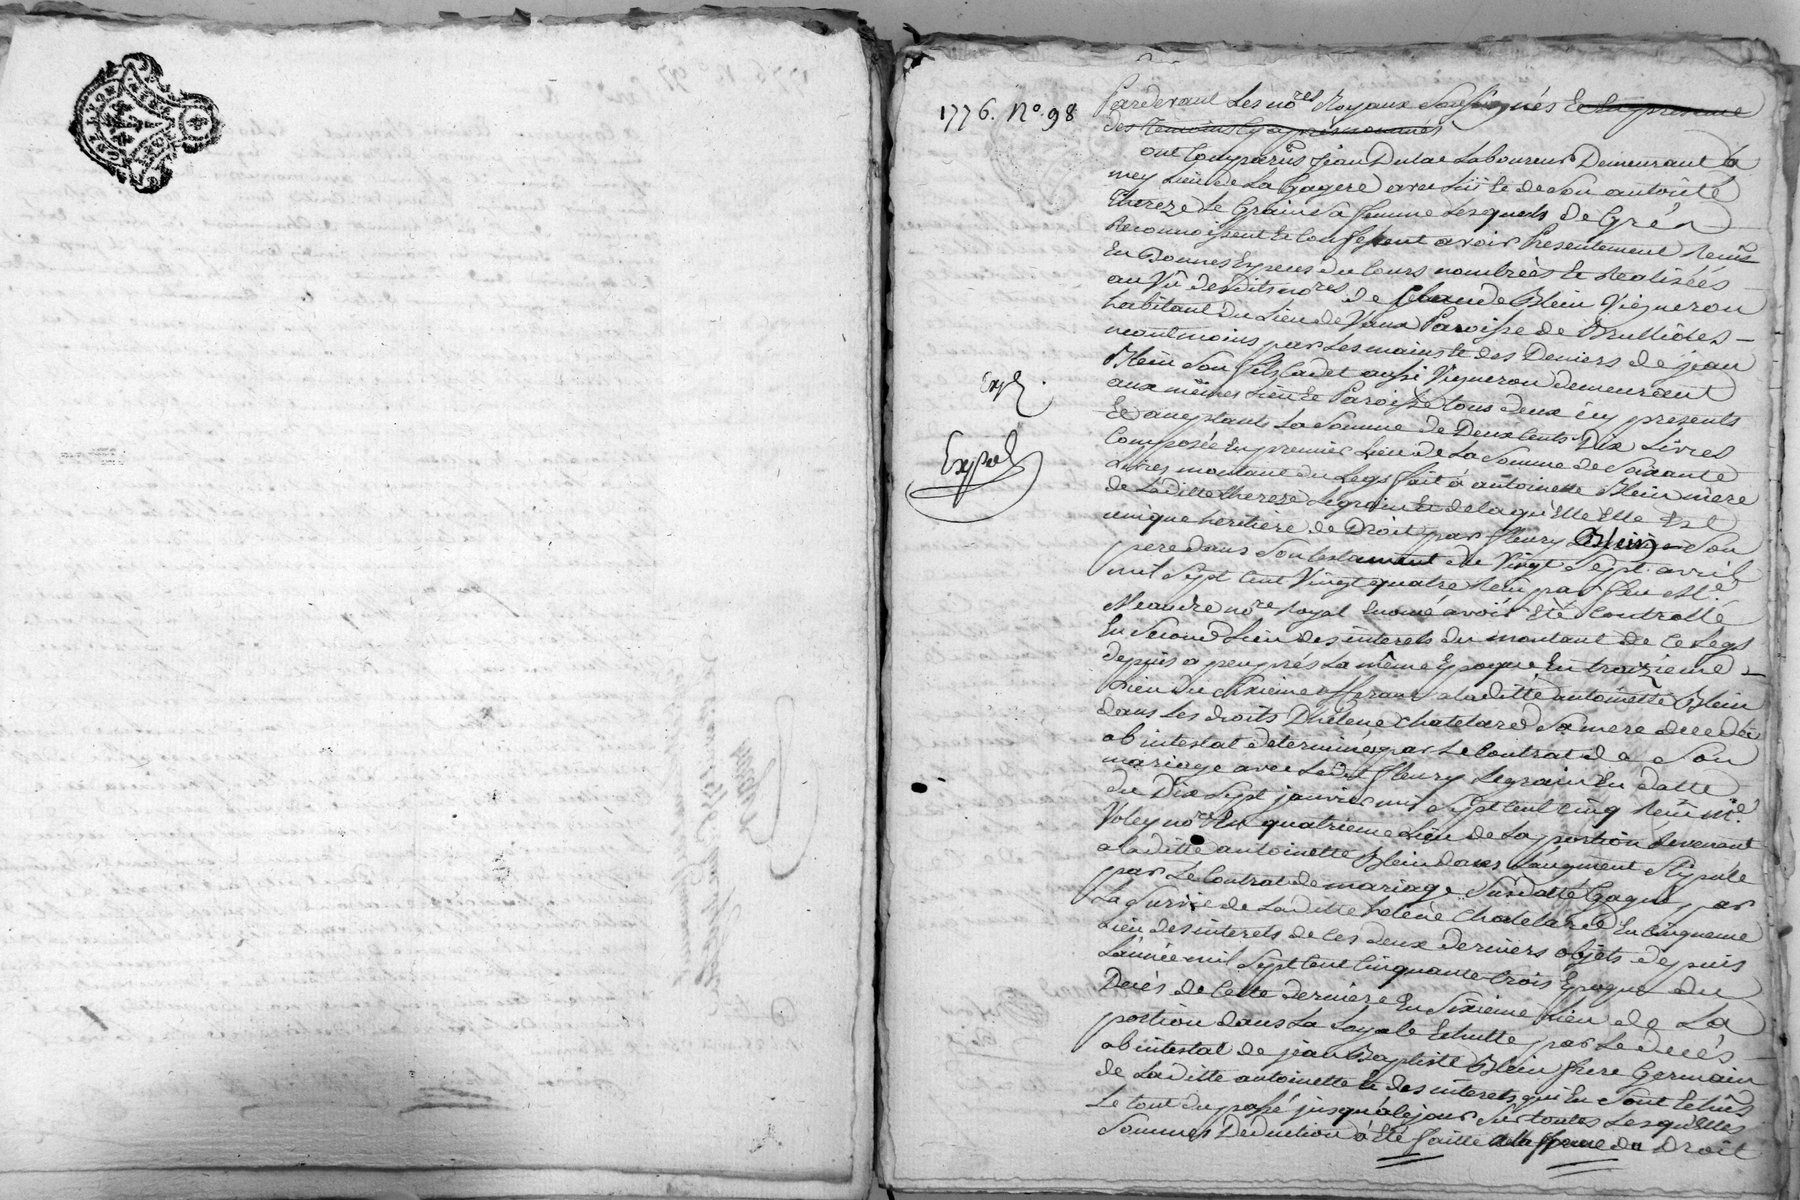 1776. N°. 98
Pardevant Les no.res Royaux Soussignés En la presence
des temoins cy apres nommés
ont Comparûs jean Dulac Laboureur Demeurant à
mey Lieu de La Gagere avec Lui et de Son autorité
thereze Le Grain Sa femme Lesquels de Gré
Reconnoissent et Confessent avoir Presentement Reçus
En Bonnes Especes du Cours nombrées et Realisées
au Vû desdits no.res de Claude Blein Vigneron
habitant du Lieu de Vaux Paroisse de Brullioles
neantmoins par Les mains et des Deniers de jean
Blein Son fils Cadet aussi Vigneron demeurant
aux mêmes Lieu et Paroisse tous deux icy presents
Et acceptants La Somme de Deux Cents Dix Livres
Composée En premier Lieu de La Somme de Soixante
Livres montant du Legs fait à antoinette Blein mere
de Laditte thereze Legrain et de laquelle Elle Est
unique heritiere de Droit par fleury Blein Son
pere dans Son testament du Vingt Sept avril
mil Sept Cent Vingt quatre Reçu par feu M.e
no.re Royal Enoncé avoir Eté Controllé
En Second Lieu des interets du montant de Ce Legs
depuis a peu prés La même Epoque En troizieme
Lieu du Sixieme afferant a laditte antoinette Blein
dans Les droits D'helene Chatelard Sa mere decedée
ab intestat determinés par Le Contrat de Son
mariage avec Ledit fleury Legrain En datte
du Dix Sept janvier mil Sept Cent Cinq Reçu M.e
Voley no.re En quatrieme Lieu de La portion Revenant
a laditte antoinette Blein dans L'augment Stipulé
par Le Contrat de mariage Susdatté Gagné par
La Survie de Laditte helene Chatelard En Cinquieme
Lieu des interets de Ces deux derniers objets depuis
L'année mil Sept Cent Cinquante trois Epoque du
Decés de Cette derniere En Sixieme Lieu de La
portion dans La Loyale Echutte par Le decés
ab intestat de jean Baptiste Blein frere Germain
de Laditte antoinette et des interets qui En Sont Echûs
Le tout du passé jusqu'à Ce jour Sur toutes Lesquelles
Sommes Deduction a Eté faitte du Droit